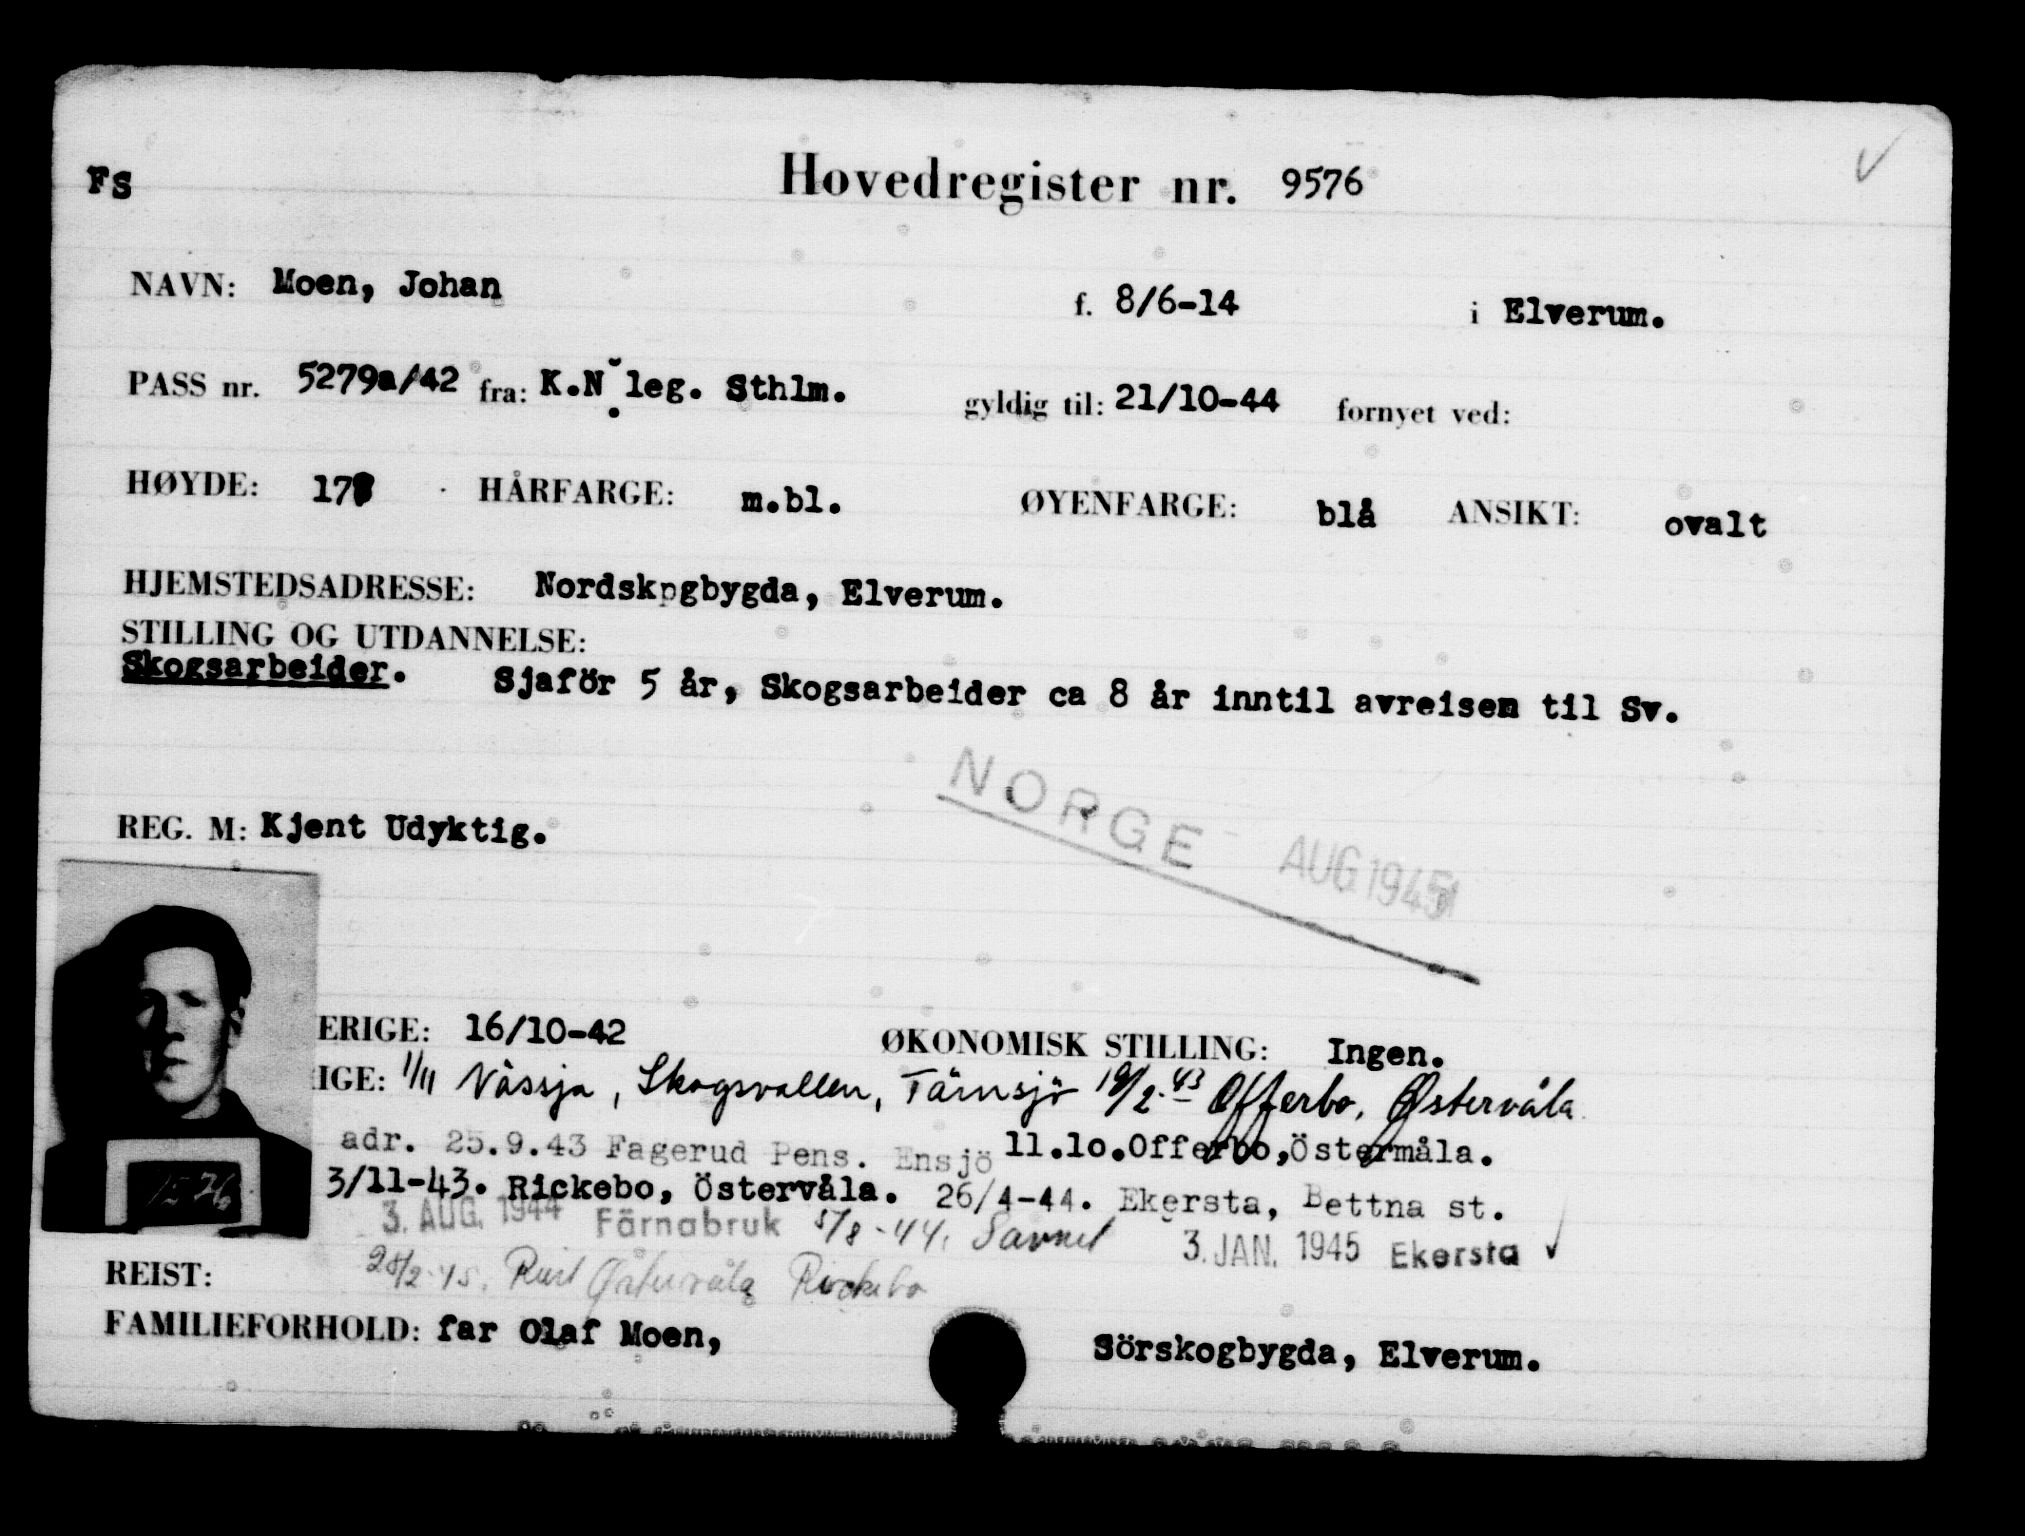 FS Hovedregister nr. 9576
NAVN: Moen, Johan f. 8/6-14 i Elverum.
PASS nr. 5279a/42 fra: K.N. leg. Sthlm. gyldig til: 21/10-44 fornyet ved:
HØYDE: 178 HÅRFARGE: m.bl. ØYENFARGE: blå ANSIKT: ovalt
HJEMSTEDSADRESSE: Nordskogbygda, Elverum.
STILLING OG UTDANNELSE:
Skogsarbeider. Sjaför 5 år, Skogsarbeider ca 8 år inntil avreisen til Sv.
NORGE AUG 1945
REG. M: Kjent Udyktig.
ERIGE: 16/10-42 ØKONOMISK STILLING: Ingen.
IGE: 1/11 Nässja, Skogsvallen, Tärnsjö 19/2-43 Offerbo, Østervåla
adr. 25.9.43 Fagerud Pens. Ensjö 11.10.Offerbo,Östermåla.
3/11-43. Rickebo, Östervåla. 26/4-44. Ekersta, Bettna st.
3. AUG. 1944 Färnabruk 5/8-44. 3. JAN. 1945 Ekersta
1576
REIST: Østervåla Rickebo
FAMILIEFORHOLD: far Olaf Moen, Sörskogbygda, Elverum.